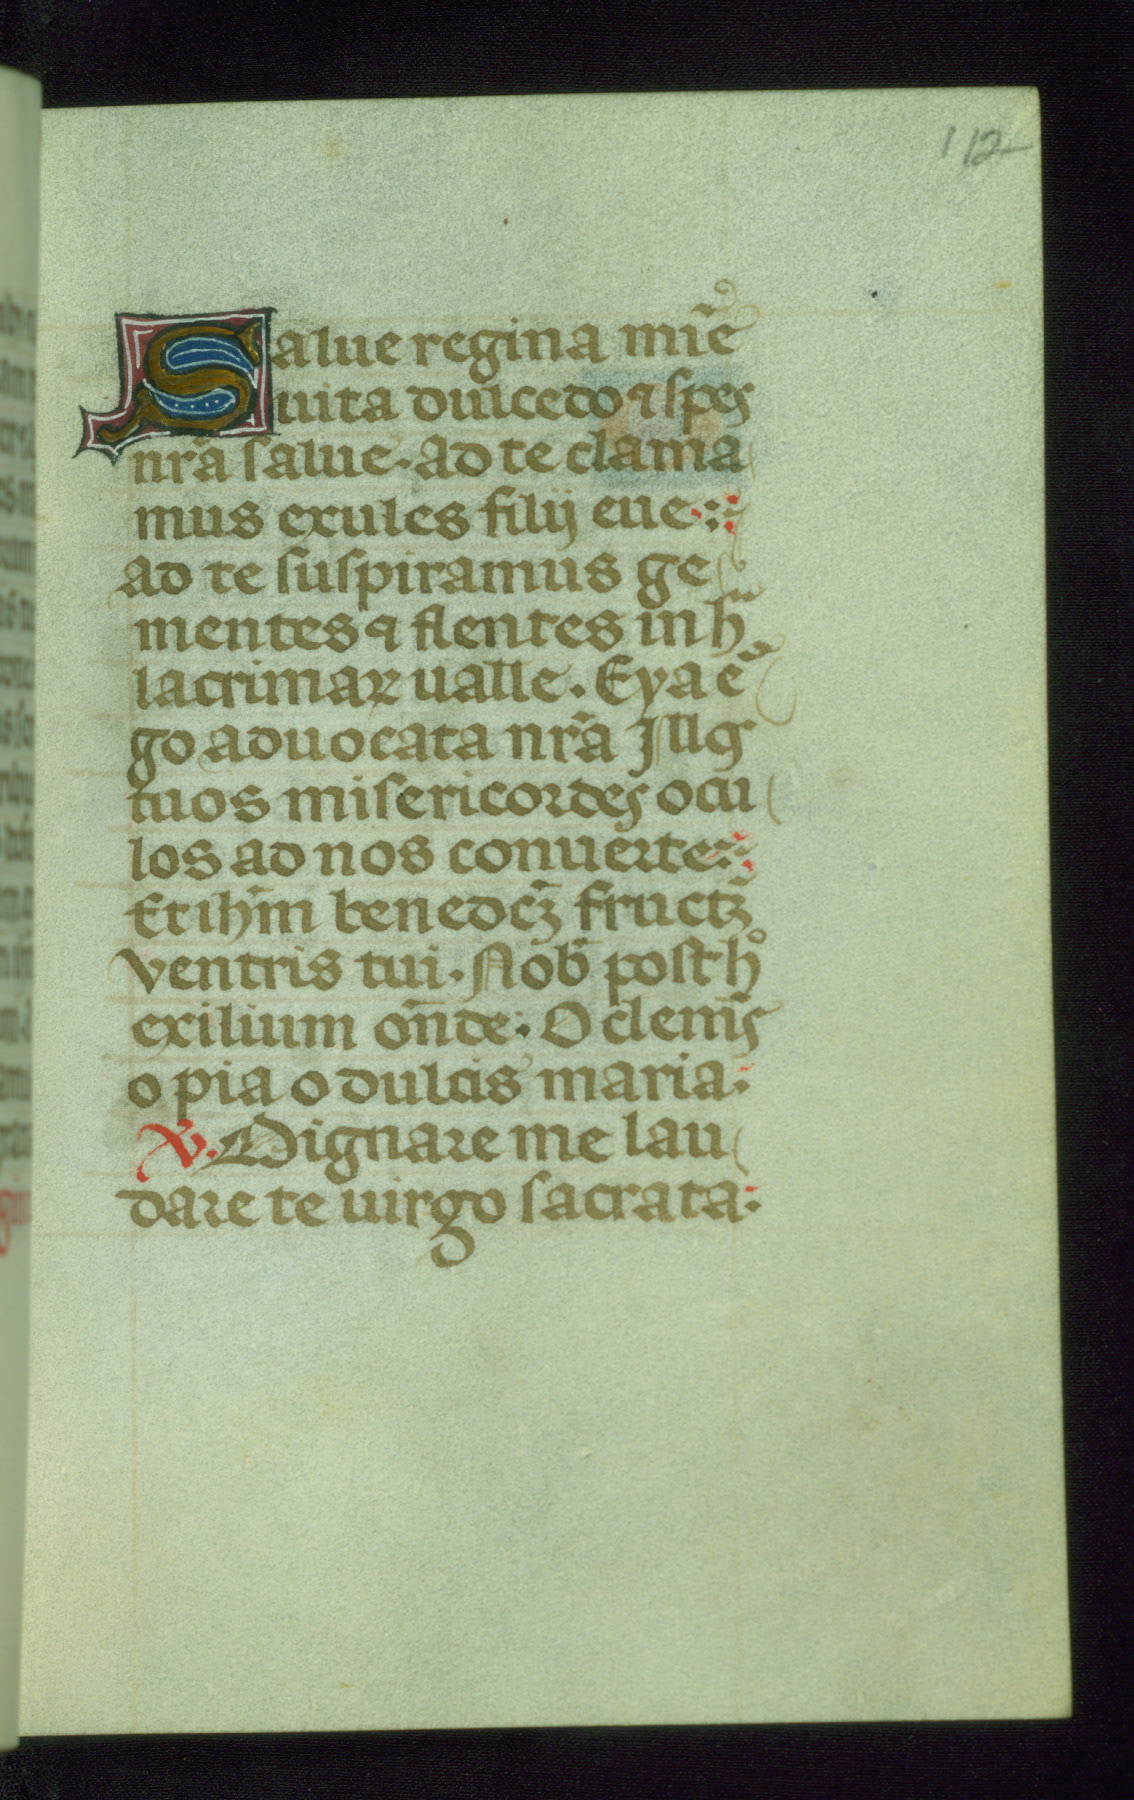 112
Salue regina mie̅
uita dulcedo ⁊ spes
nr̅a salue. Ad te clama
mus exules filij eue:
ad te suspiramus ge
mentes ⁊ flentes in h
lacrimaꝝ ualle. Eya e̅
go aduocata nr̅a Illos
tuos misericordes ocu
los ad nos conuerte:
Et ih̅m benedcꝫ̅ fructꝫ̅
ventris tui. Nob̅ post hͦ
exilium on̅de: O clem̅s
o pia o dulcis maria.
V. Dignare me lau
dare te uirgo sacrata: